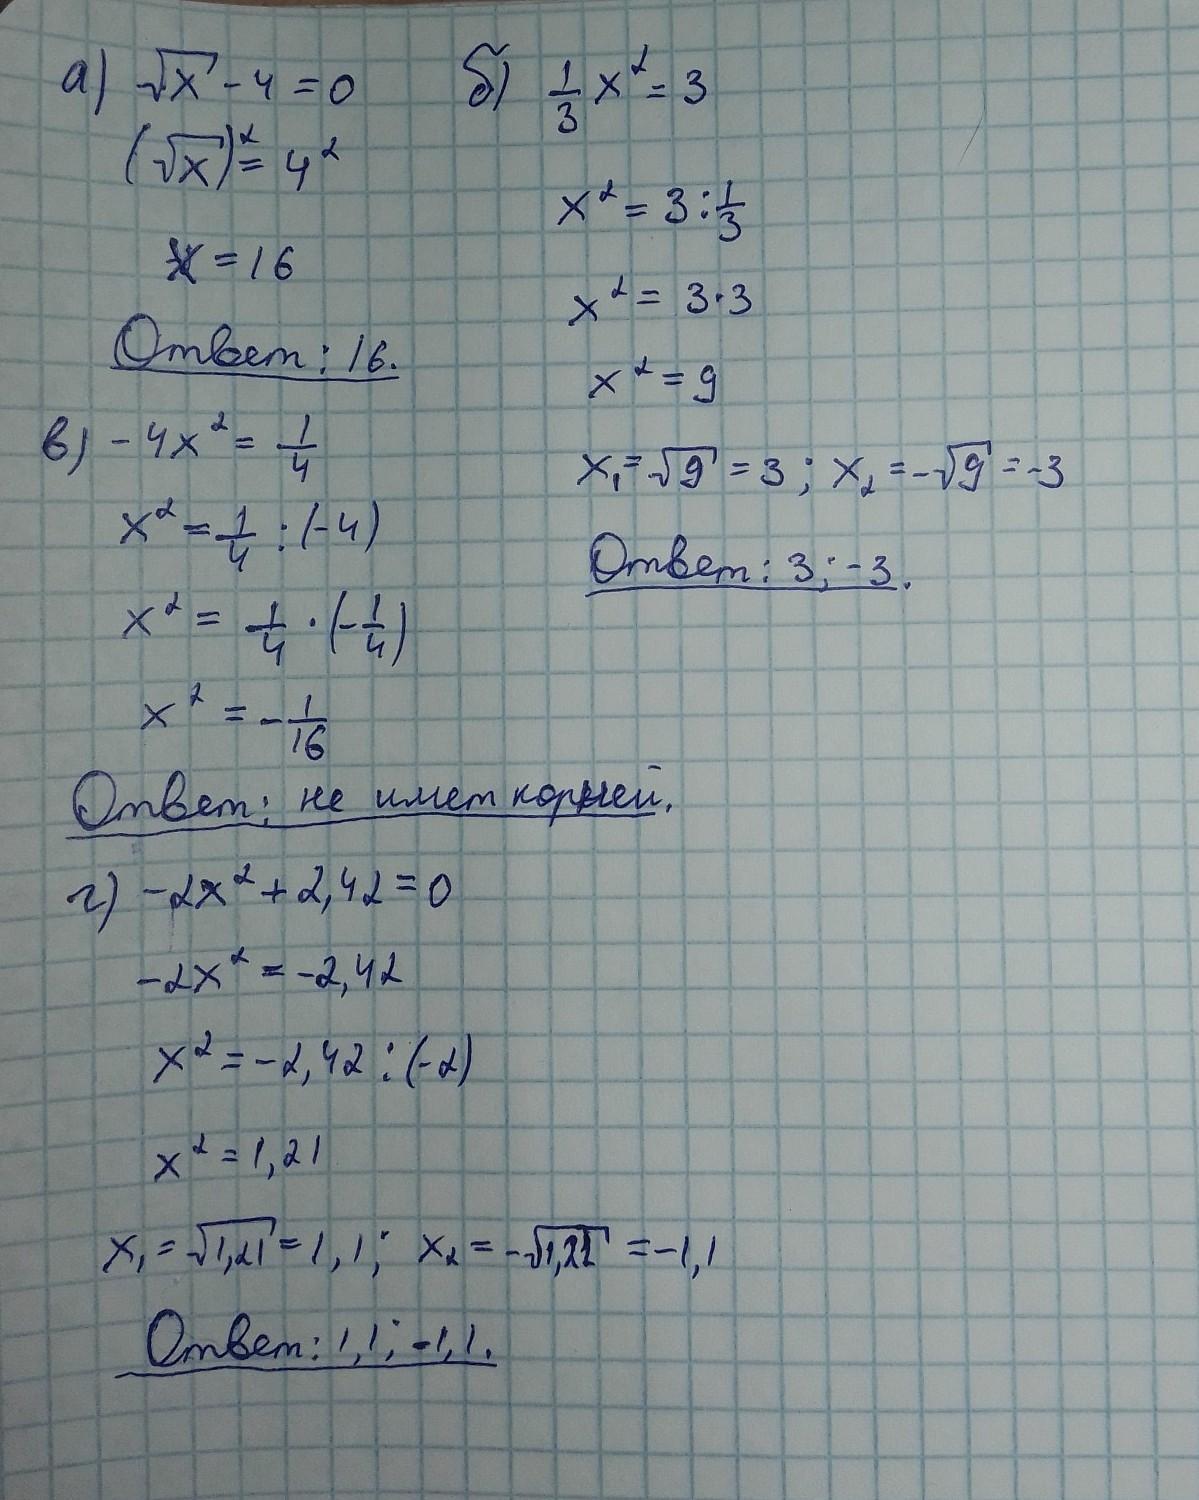 а) √x - 4 = 0
(√x)² = 4²
x = 16
Ответ: 16.
б) 1/3 x² = 3
x² = 3 : 1/3
x² = 3·3
x² = 9
x₁ = √9 = 3; x₂ = -√9 = -3
Ответ: 3; -3.
в) - 4x² = 1/4
x² = 1/4 : (-4)
x² = 1/4 · (-1/4)
x² = - 1/16
Ответ: не имет корней.
г) -2x² + 2,42 = 0
-2x² = -2,42
x² = -2,42 : (-2)
x² = 1,21
x₁ = √1,21 = 1,1; x₂ = -√1,21 = -1,1
Ответ: 1,1; -1,1.